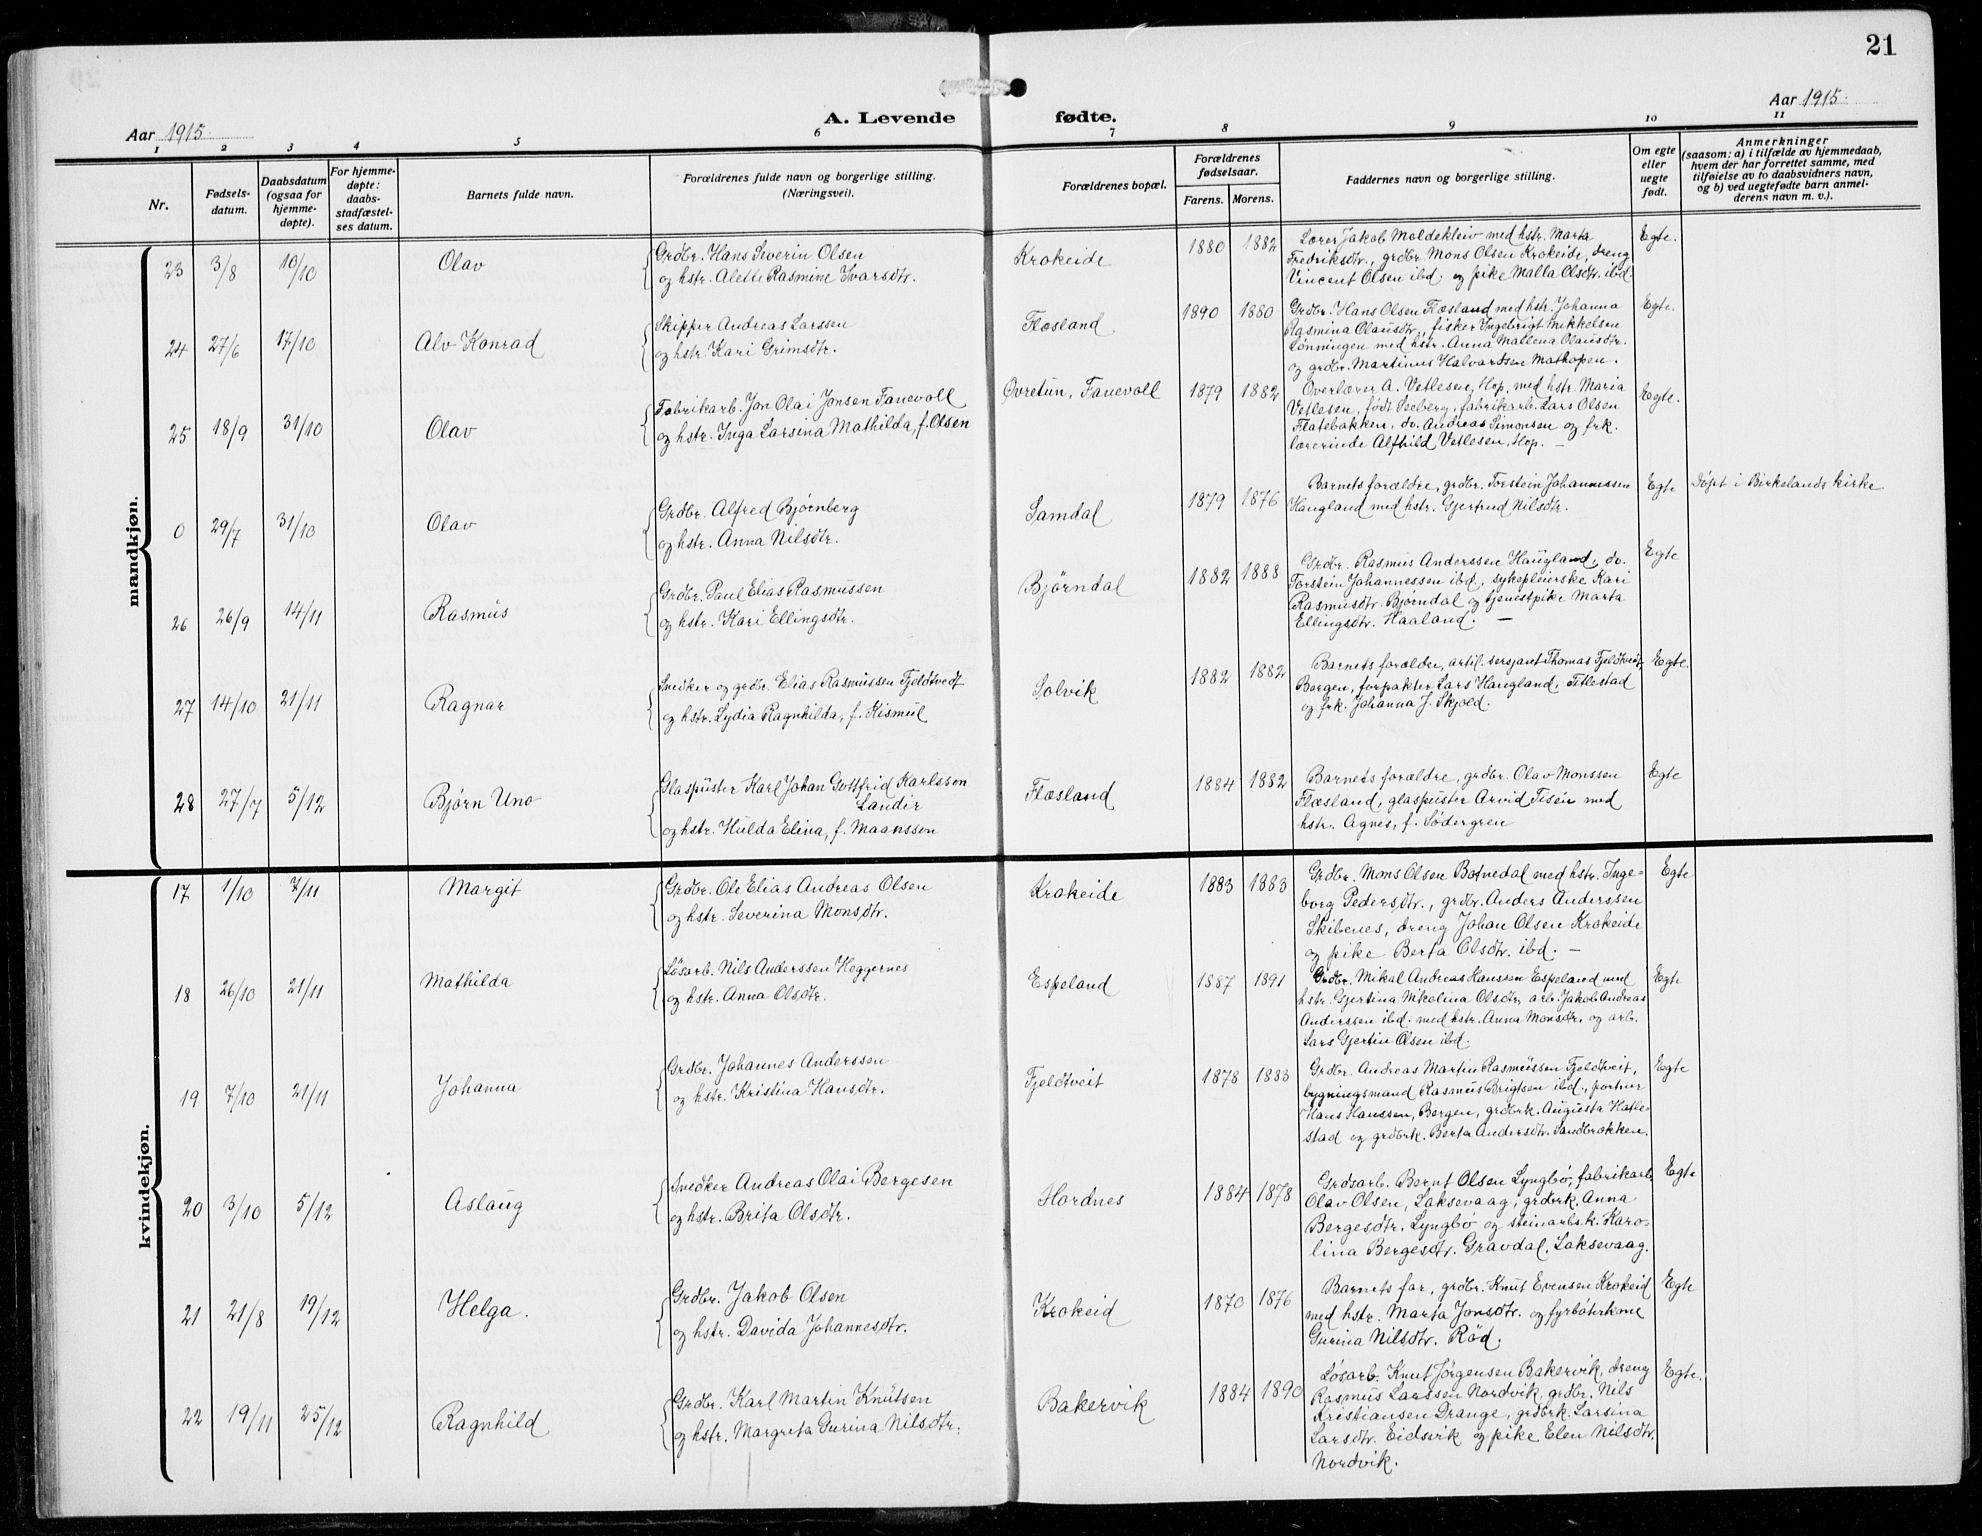 21
Aar 1915.
A. Levende fødte.
Aar 1915.
1 2 3 4 5 6 7 8 9 10 11
Nr.
Fødsels-
datum.
Daabsdatum
(ogsaa for
hjemme-
døpte).
For hjemme-
døpte:
daabs-
stadfæstel-
ses datum.
Barnets fulde navn.
Forældrenes fulde navn og borgerlige stilling.
(Næringsvei).
Forældrenes bopæl.
Forældrenes
fødselsaar.
Farens. Morens.
Faddernes navn og borgerlige stilling.
Om egte
eller
uegte
født.
Anmerkninger
(saasom: a) i tilfælde av hjemmedaab,
hvem der har forrettet samme, med
tilføielse av to daabsvidners navn,
og b) ved uegtefødte barn anmel-
derens navn m. v.).
mandkjøn.
23 3/8 10/10 Olav
Grdbr. Hans Severin Olsen
og hstr. Alette Rasmine Ivarsdtr.
Krokeide 1880 1882
Lærer Jakob Moldekleiv med hstr. Marta
Fredriksdtr., grdbr. Mons Olsen Krokeide, dreng
Vincent Olsen ibd. og pike Malla Olsdtr. ibd.
Egte.
24 27/6 17/10 Alv Konrad
Skipper Andreas Larssen
og hstr. Kari Grimsdtr.
Flæsland 1890 1880
Grdbr. Hans Olsen Flæsland med hstr. Johanna
Rasmina Olausdtr., fisker Ingebrigt Mikkelsen
Lønningen med hstr. Anna Mallena Olausdtr.
og grdbr. Martinus Halvardsen Mathopen.
Egte.
25 18/9 31/10 Olav
Fabrikarb. Jon Olai Jonsen Fanevoll
og hstr. Inga Larsina Mathilda, f. Olsen
Øvretun, Fanevoll 1879 1882
Overlærer A. Vetlesen, Hop, med hstr. Maria
Vetlesen, født Seeberg, fabrikarb. Lars Olsen
Flatebakken, do. Andreas Simonsen og frk.
lærerinde Alfhild Vetlesen, Hop. —
Egte.
0 29/7 31/10 Olav
Grdbr. Alfred Bjørnberg
og hstr. Anna Nilsdtr.
Samdal 1879 1876
Barnets forældre, grdbr. Torstein Johannessen
Haugland med hstr. Gjertrud Nilsdtr.
Egte Døpt i Birkelands kirke
26 26/9 14/11 Rasmus
Grdbr. Paul Elias Rasmussen
og hstr. Kari Ellingsdtr.
Bjørndal 1882 1888
Grdbr. Rasmus Anderssen Haugland, do.
Torstein Johannessen ibd., sykepleierske Kari
Rasmusdtr. Bjørndal og tjenestpike Marta
Ellingsdtr. Haaland. —
Egte
27 14/10 21/11 Ragnar
Snedker og grdbr. Elias Rasmussen Fjeldtvedt
og hstr. Lydia Ragnhilda, f. Kismul
Solvik 1882 1882
Barnets forældre, artil. sersjant Thomas Fjeldtvedt
Bergen, forpakter Lars Haugland, Titlestad
og frk. Johanna J. Skjold.
Egte.
28 27/7 5/12 Bjørn Uno
Glaspuster Karl Johan Gottfrid Karlsson
Landir
og hstr. Hulda Elina, f. Maansson
Flæsland 1884 1882
Barnets forældre, grdbr. Olav Monssen
Flæsland, glaspuster Arvid Tisén med
hstr. Agnes, f. Södergren
Egte
kvindekjøn.
17 1/10 7/11 Margit
Grdbr. Ole Elias Andreas Olsen
og hstr. Severina Monsdtr.
Krokeide 1883 1883
Grdbr. Mons Olsen Botnedal med hstr. Inge-
borg Pedersdtr., grdbr. Anders Anderssen
Skibenes, dreng Johan Olsen Krokeide
og pike Berta Olsdtr. ibd. —
Egte
18 26/10 21/11 Mathilda
Løsarb. Nils Anderssen Heggernes
og hstr. Anna Olsdtr.
Espeland 1887 1891
Grdbr. Mikal Andreas Hanssen Espeland med
hstr. Gjertina Nikolina Olsdtr, arb. Jakob Andreas
Anderssen ibd. med hstr. Anna Monsdtr. og arb.
Lars Gjertin Olsen ibd.
Egte
19 7/10 21/11 Johanna
Grdbr. Johannes Anderssen
og hstr. Kristina Hansdtr.
Fjeldtveit 1878 1883
Grdbr. Andreas Martin Rasmussen Fjeldtveit,
bygningsmand Rasmus Brigtsen ibd., portner
Hans Hanssen, Bergen, grdbrk. Augusta Hatle-
stad og grdbrk. Berta Andersdtr. Sandbrækken.
Egte
20 3/10 5/12 Aslaug
Snedker Andreas Olai Bergesen
og hstr. Brita Olsdtr.
Hordnes 1884 1878
Grdsarb. Bernt Olsen Lyngbø, fabrikarb.
Olav Olsen, Laksevaag, grdbrk. Anna
Bergesdtr. Lyngbø og steinarbs.k. Karo-
lina Bergesdtr. Gravdal, Laksevaag.
Egte
21 21/8 19/12 Helga.
Grdbr. Jakob Olsen
og hstr. Davida Johannesdtr.
Krokeid 1870 1876
Barnets far, grdbr. Knut Evensen Krokeid
med hstr. Marta Jonsdtr. og fyrbøterkone
Gurina Nilsdtr. Rød.
Egte
22 19/11 25/12 Ragnhild
Grdbr. Karl Martin Knutsen
og hstr. Margreta Gurina Nilsdtr.
Bakervik 1884 1890
Løsarb. Knut Jørgensen Bakervik, dreng
Rasmus Larssen Nordvik, grdbr. Nils
Kristiansen Drange, grdbrk. Larsina
Larsdtr. Eidsvik og pike Elen Nilsdtr.
Nordvik.
Egte.